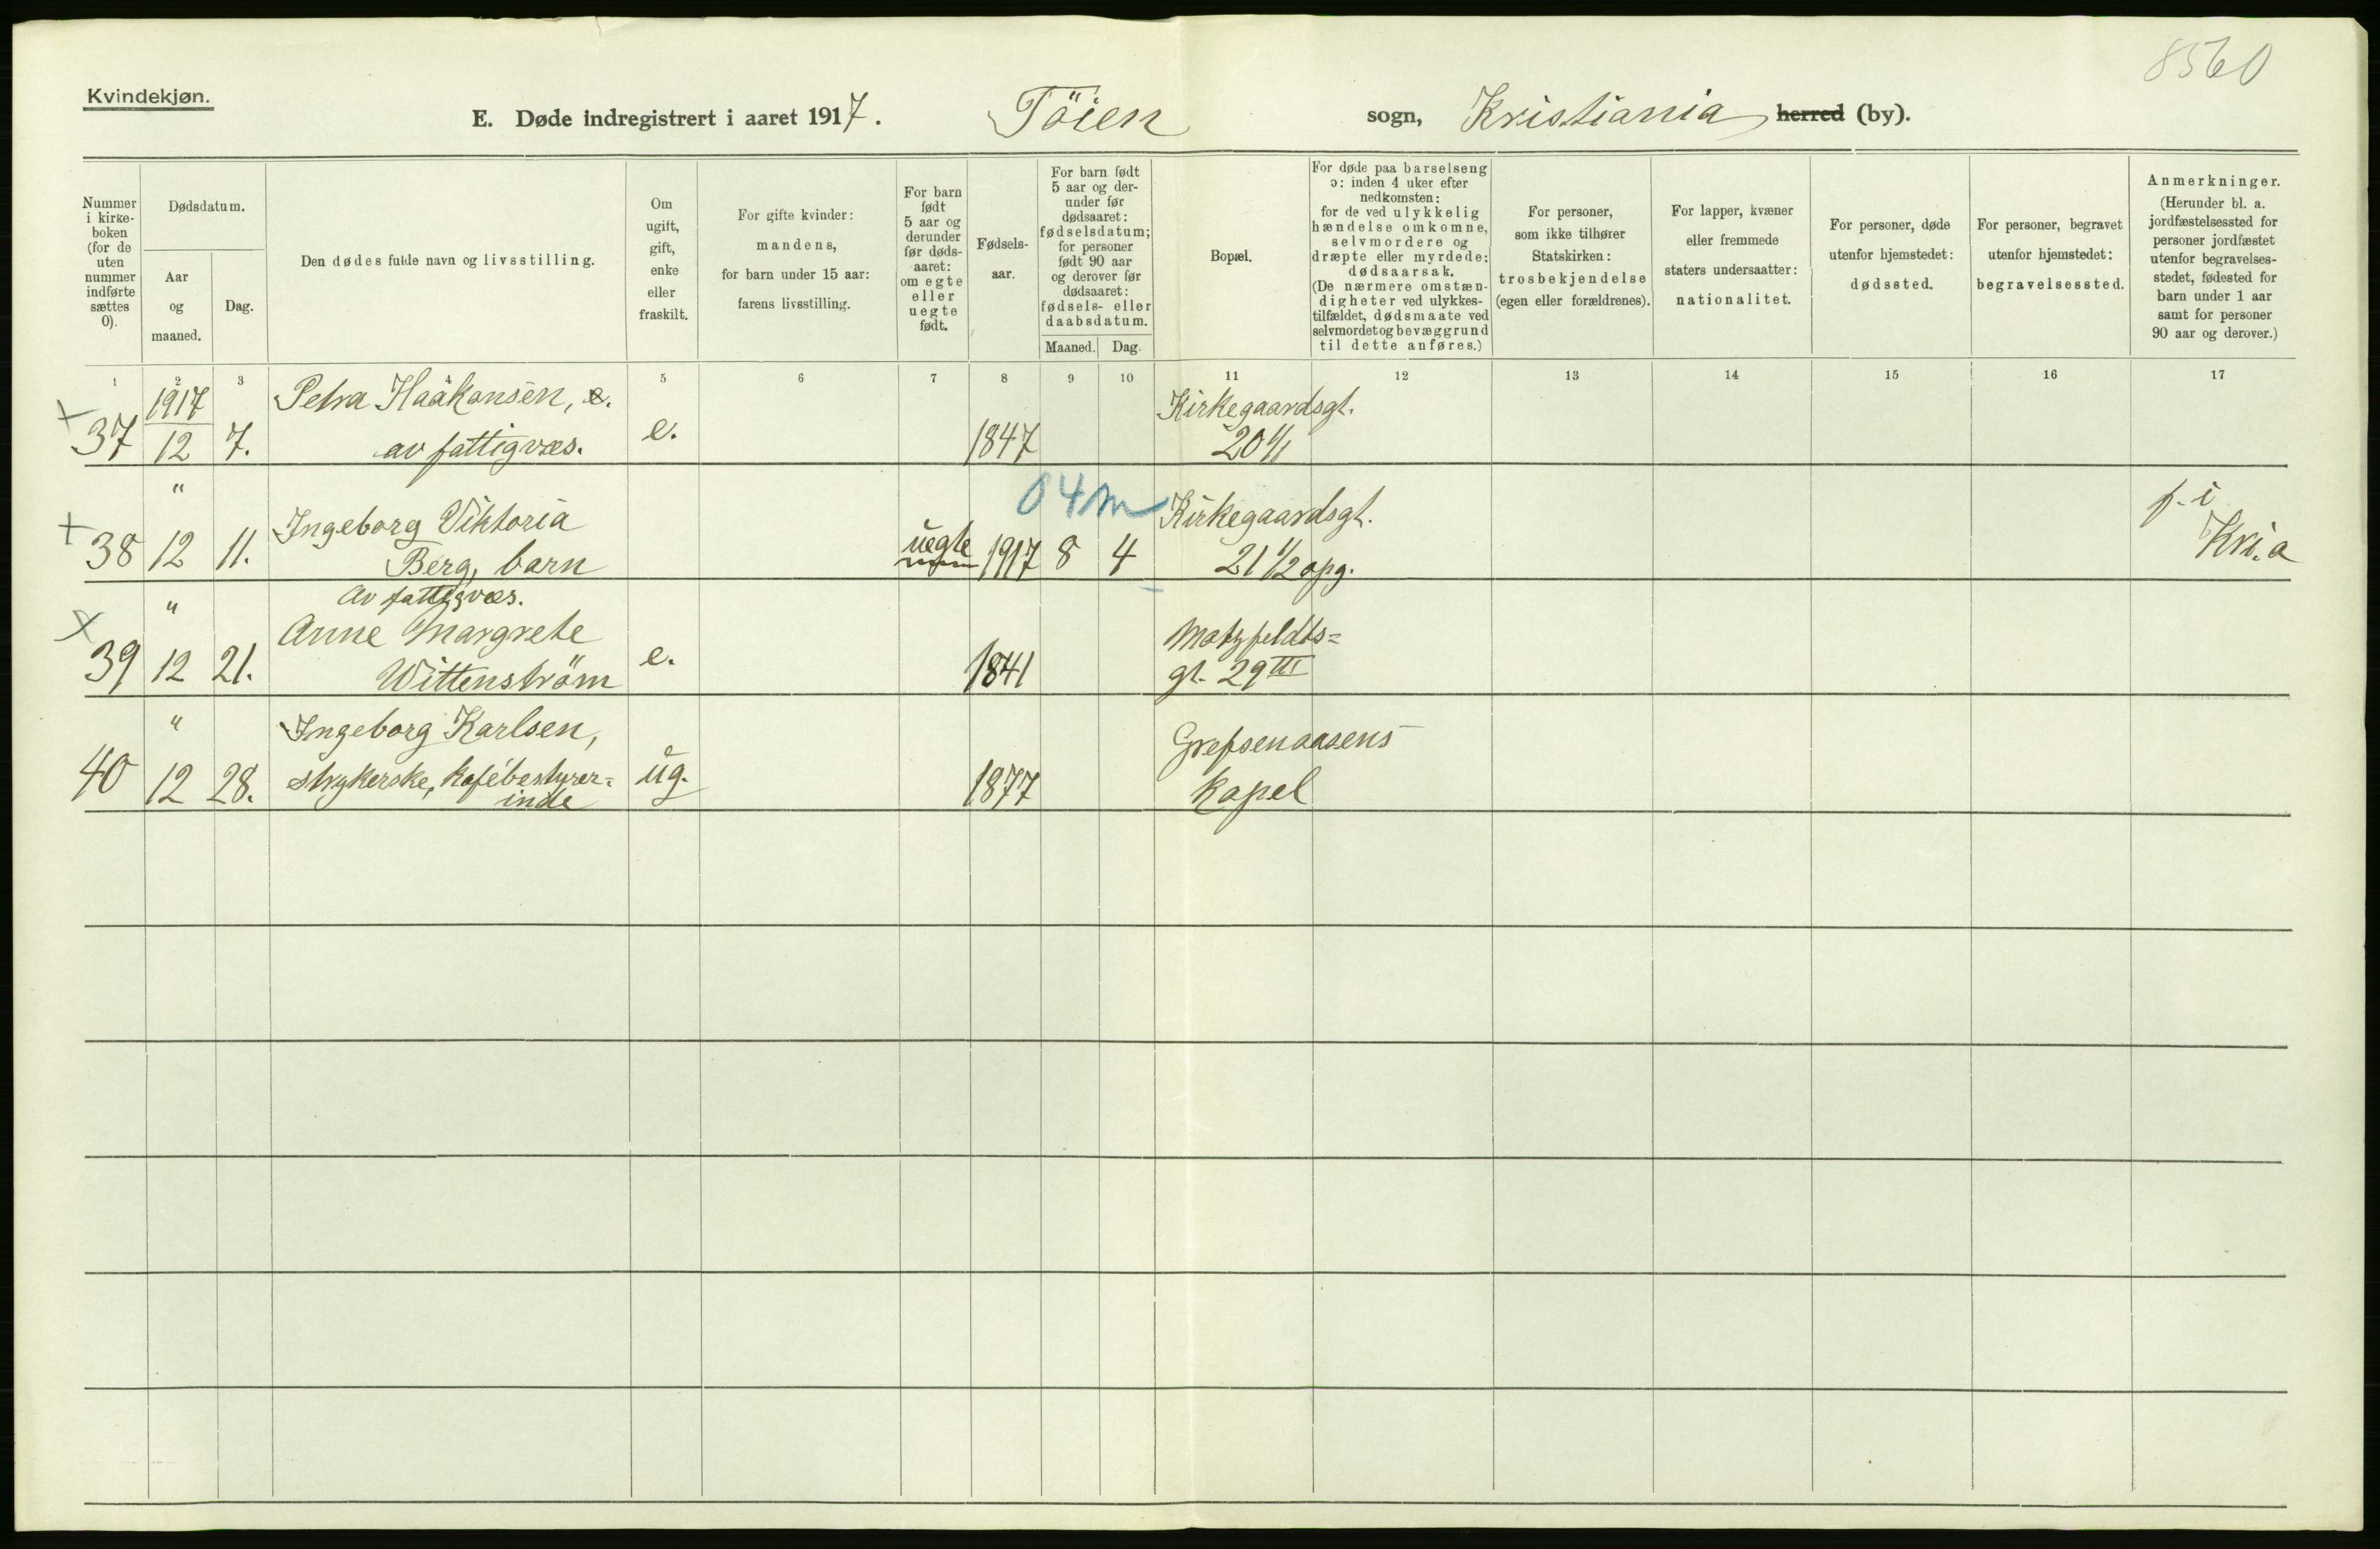 8560
Kvindekjøn.
E. Døde indregistrert i aaret 1917. Töien sogn, Kristiania herred (by).
Nummer i kirke- boken (for de uten nummer indførte sættes 0).
Dødsdatum.
Aar og maaned.
Dag.
Den dødes fulde navn og livsstilling.
Om ugift, gift, enke eller fraskilt.
For gifte kvinder: mandens, for barn under 15 aar: farens livsstilling.
For barn født 5 aar og derunder før døds- aaret: om egte eller uegte født.
Fødsels- aar.
For barn født 5 aar og der- under før dødsaaret: fødselsdatum; for personer født 90 aar og derover før dødsaaret: fødsels- eller daabsdatum.
Maaned. Dag.
Bopæl.
For døde paa barselseng ɔ: inden 4 uker efter nedkomsten: for de ved ulykkelig hændelse omkomne, selvmordere og dræpte eller myrdede: dødsaarsak. (De nærmere omstæn- digheter ved ulykkes- tilfældet, dødsmaate ved selvmordet og bevæggrund til dette anføres.)
For personer, som ikke tilhører Statskirken: trosbekjendelse (egen eller forældrenes).
For lapper, kvæner eller fremmede staters undersaatter: nationalitet.
For personer, døde utenfor hjemstedet: dødssted.
For personer, begravet utenfor hjemstedet: begravelsessted.
Anmerkninger. (Herunder bl. a. jordfæstelsessted for personer jordfæstet utenfor begravelses- stedet, fødested for barn under 1 aar samt for personer 90 aar og derover.)
1 2 3 4 5 6 7 8 9 10 11 12 13 14 15 16 17
1917 Petra Haakansen, e. Kirkegaardsgt.
37 12 7. av fattigvæs. e. 1847 20 I/1
" Ingeborg Viktoria 04m Kirkegaardsgt. f. i
38 12 11. Berg, barn uegte 1917 8 4 21 1/2 opg. Kri.a
av fattigvæs.
" Anne Margrete Motzfeldts=
39 12 21. Wittenström e. 1841 gt. 29 III
" Ingeborg Karlsen, Grefsenaasens
40 12 28. strykerske, kafébestyrer= ug. 1877 kapel
inde